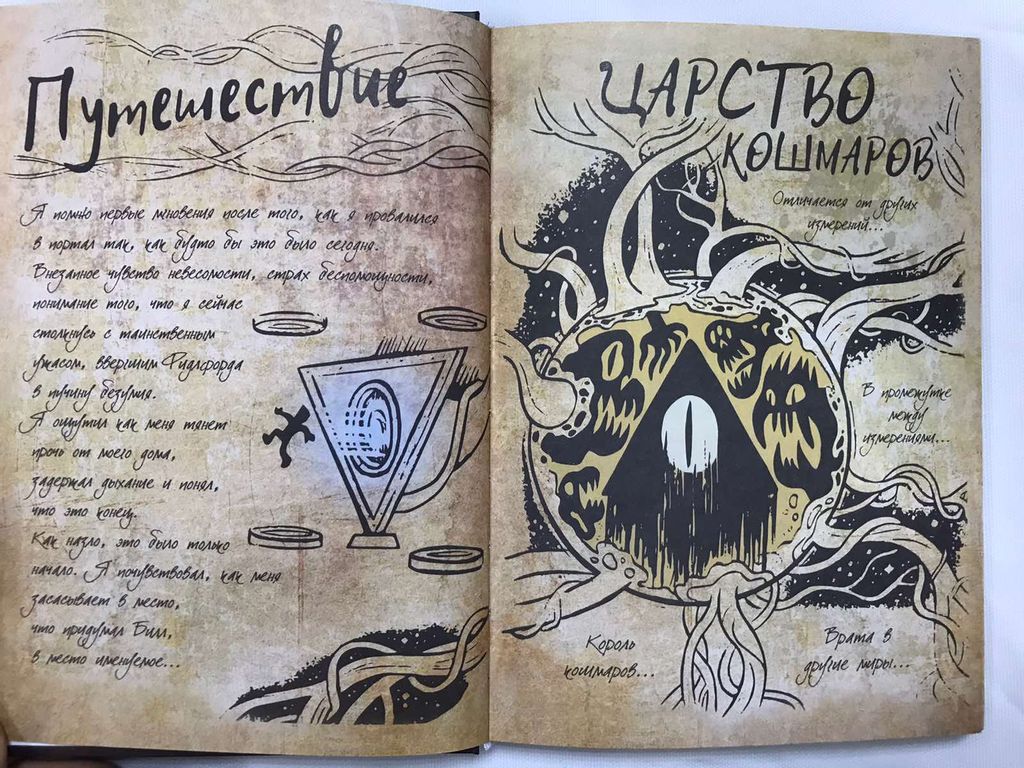 Путешествие
Я помню первые мгновения после того, как я провалился
в портал так, как будто бы это было сегодня.
Внезапное чувство невесомости, страх беспомощности,
понимание того, что я сейчас
столкнусь с таинственным
ужасом, ввергшим Фидлфорда
в пучину безумия.
Я ощутил как меня тянет
прочь от моего дома,
задержал дыхание и понял,
что это конец.
Как назло, это было только
начало. Я почувствовал, как меня
засасывает в место,
что придумал Билл,
в место именуемое...
ЦАРСТВО
КОШМАРОВ
Отличается от других
измерений...
В промежутке
между
измерениями...
Король
кошмаров...
Врата в
другие миры...